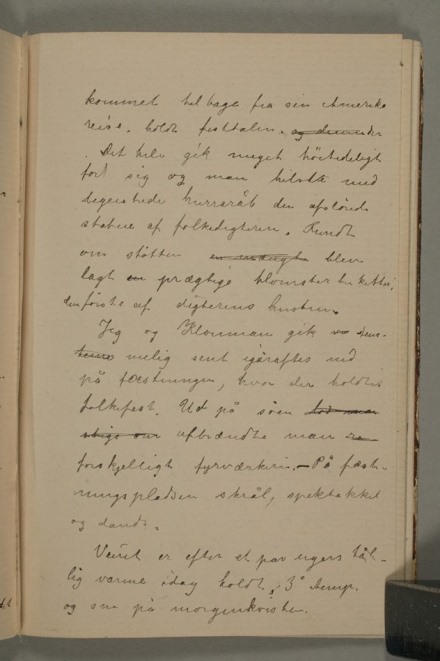 kommet tilbage fra sin Amerika
reise, holdt festtalen. og denunder
. Det hele gik meget höitideligt
fort sig og man hilste med
begeistrede hurraråb den afslørede
statue af folkedigteren. Rundt
om støtten en mængde blev
lagt en prægtige blomsterbuketter,
den förste af digterens hustru.
Jeg og Klouman gik
temmelig sent igåraftes ned
på fæstningen, hvor der holdtes
folkefest. Ud på söen lod man
stige om afbrændte man en
forskjelligt fyrværkeri. – På fæst-
ningspladsen skrål, spektakkel
og dands.
Veiret er efter et par ugers
lig varme idag koldt, 3° temp.
og sne på morgenkvisten.